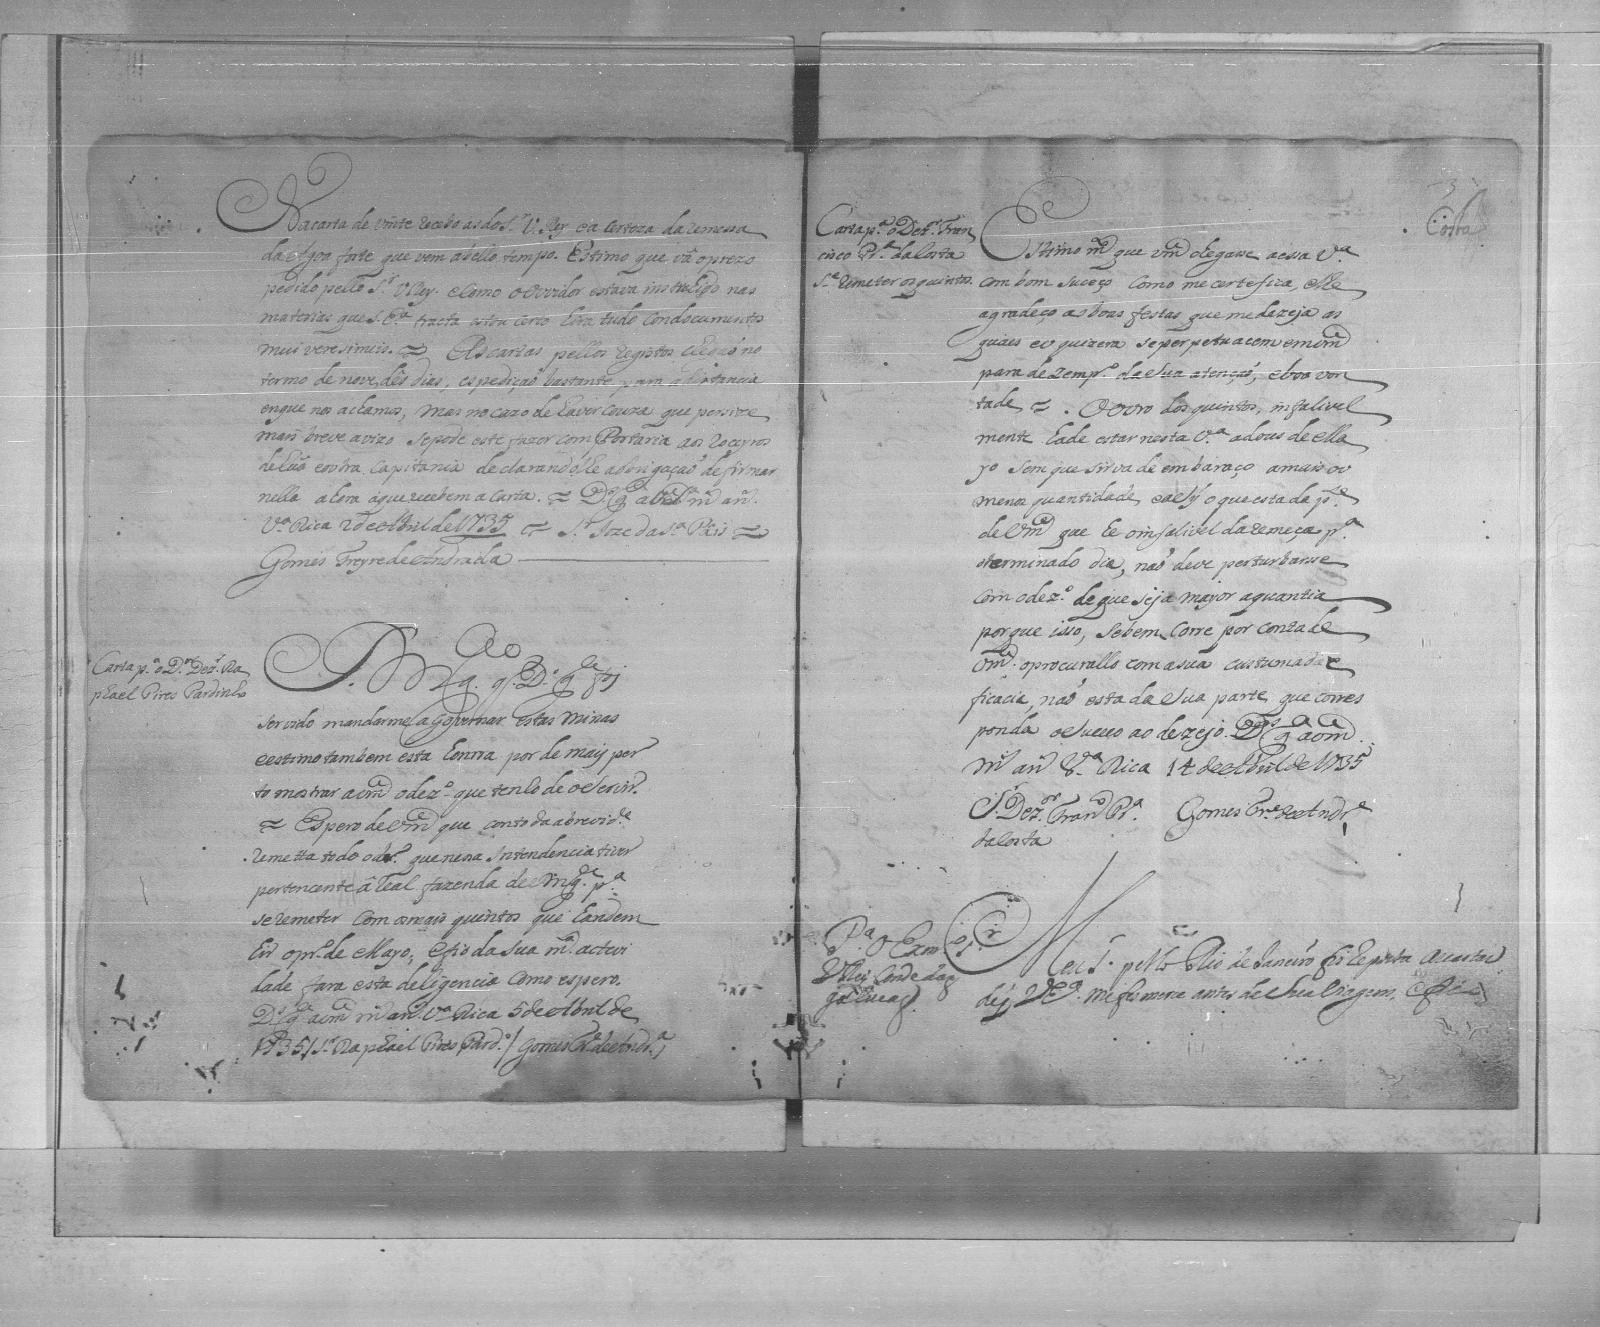 Na carta de vm.te recebo as do S.r V. Rey e a certeza da remessa
da Agoa forte que vem a bello tempo. Estimo que vâ o prezo
pedido pello S.r V Rey. e como o ovvidor estava instruhido nas
materias que S. Ex.ª tracta estou certo hira tudo con documentos
mui veresimeis. = As cartas pellos registos chegaõ no
termo de nove, dês dias, espediçaõ bastante, p.ª a distancia
enque nos achamos, mas no cazo de haver couza que persize
mais breve avizo se pode este fazer com Portaria aos roceyros
de huã e outra Capitania declarando lhe a obrigaçaõ de firmar
nella a hora aque recebem a Carta. = D.s g.e a vm.ce m.s an.s
V.ª Rica 2 de Abril de 1735 = S.r Joze da S.ª Pais =
Gomes Freyre de Andrada
Carta p.ª o D.or Dez.or Ra
phael Pires Pardinho
S. Mg.e q D.s g.e foy
servido mandarme a Governar estas Minas
e estimo tambem esta honrra por de mais per
to mostrar a vm.ce o dez.o que tenho de o servir.
= Espero de vm.ce que con toda a brevid.e
remetta todo o dr.o que nessa Intendencia tiver
pertencente â real fazenda de S Mg.de p.ª
se remeter com os mais quintos que handem
hir o pr.o de Mayo; e fio da sua m.ta activi
dade fara esta deligencia como espero.
D.s g.e a vm.ce m.s an.s V.ª Rica 5 de Abril de
1735 / S.r Raphael Pires Pard.o / Gomes Fr.e de Andr.ª
3
Costa
Carta p.ª o Dez.or Fran
cisco Pr.ª da Costa
S.e remeter os quintos.
Estimo m.to que vm.ce chegasse a essa V.ª
com bom suceço como me certefica, e lhe
agradeço as boas festas que me dezeja as
quais eu quizera se perpetuacem em vm.ce
para dezemp.o da sua atençaõ, e boa von
tade =. O ovro dos quintos, infalivel
mente hade estar nesta V.ª a dous de Ma
yo sem que sirva de embaraço a mais ou
menos quantidade, e a esy o que esta da p.te
de Vm.ce que he o infalivel da remeça p.ª
o terminado dia, naõ deve perturbarsse
com o dez.o de que seja mayor a quantia
porque isso, se bem corre por conta de
Vm.ce o procurallo com a sua custumada e
ficacia, naõ esta da sua parte, que corres
ponda o sucesso ao dezejo. D.s g.e a vm.ce
m.s an.s V.ª Rica 14 de Abril de 1735
S.r Dez.or Fran.co Pr.ª Gomes Fr.e de Andr.e
da Costa
P.ª o Exm.o S.r
V Rey Conde das
galveas
Meu S.r pello Rio de Janeiro fis reposta a carta
de V Ex.ª me fes merce antes de sua viagem, e